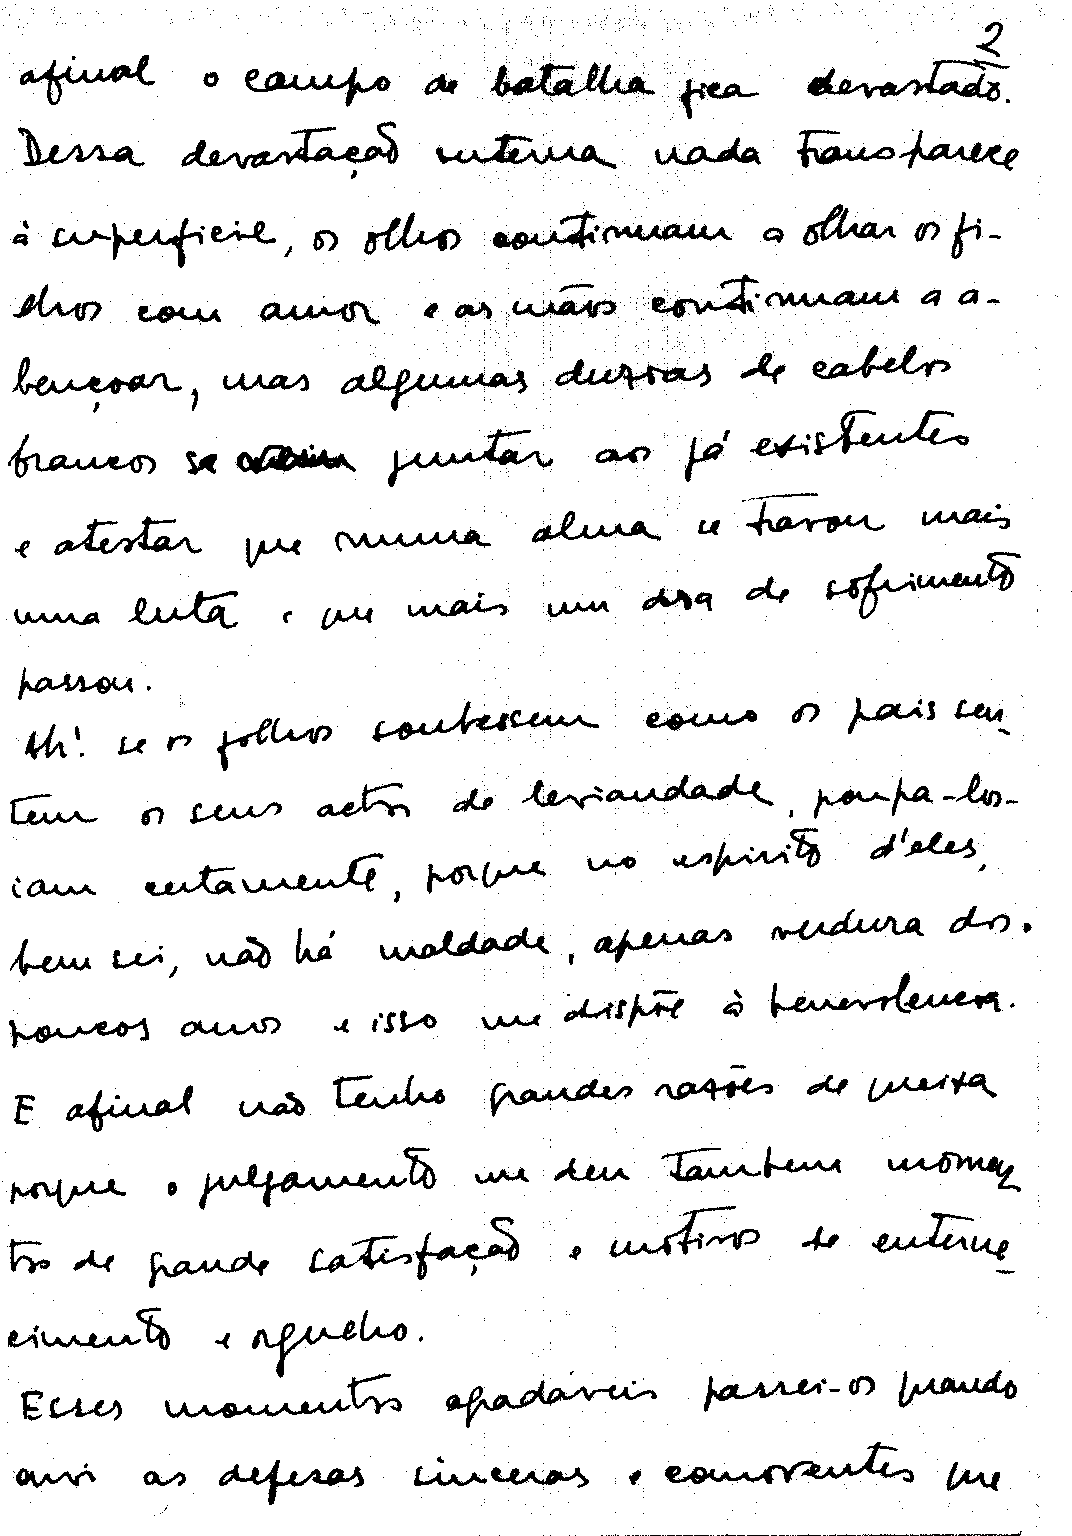 2
afinal o campo de batalha fica devastado.
Dessa devastação interna nada transparece
à superficie, os olhos continuam a olhar os fi-
lhos com amor e as mãos continuam a a-
bençoar, mas algumas duzias de cabelos
brancos se vêm juntar aos já existentes
e atestar que numa alma se travou mais
uma luta e que mais um dia de sofrimento
passou.
Ah! se os filhos soubessem como os pais sen-
tem os seus actos de leviandade, poupa-los-
iam certamente, porque no espirito d'eles,
bem sei, não há maldade, apenas verdura dos
poucos anos e isso me dispõe à benevolencia.
E afinal não tenho grandes razões de queixa
porque o julgamento me deu tambem momen-
tos de grande satisfação e motivos de enterne-
cimento e orgulho.
Esses momentos agradáveis passei-os quando
ouvi as defesas sinceras e comoventes que